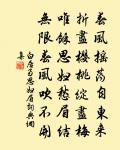 春風搖蕩自東來
折盡櫻桃綻盡梅
惟餘思婦愁眉結
無限春風吹不開
白居易思婦眉詞典網
集